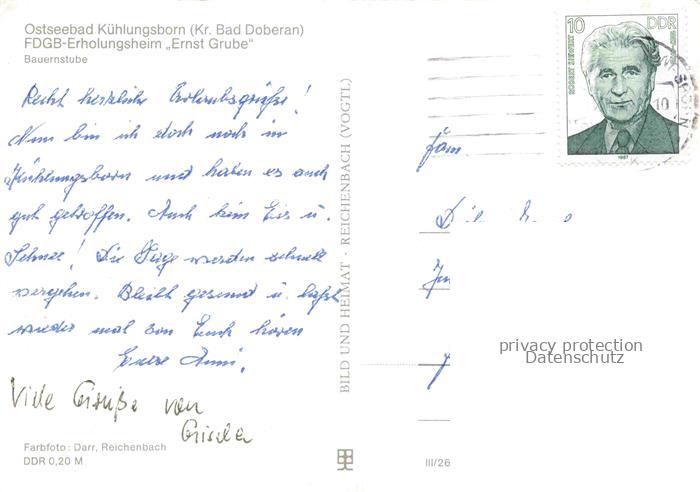 Ostseebad Kühlungsborn (Kr. Bad Doberan)
FDGB-Erholungsheim „Ernst Grube"
Bauernstube
Recht herzliche Urlaubsgrüße!
Nun bin ich doch noch in
Kühlungsborn und haben es auch
gut getroffen. Auch beim Eis u.
Schnee! Die Tage werden schnell
vergehen. Bleibt gesund u. laßt
wieder mal von Euch hören
Eure Anni.
Viele Grüße von
Gisela
Farbfoto: Darr, Reichenbach
DDR 0,20 M
BILD UND HEIMAT · REICHENBACH (VOGTL)
III/26
10 DDR
ROBERT SIEWERT
1987
10
Fam
Die
privacy protection
Datenschutz